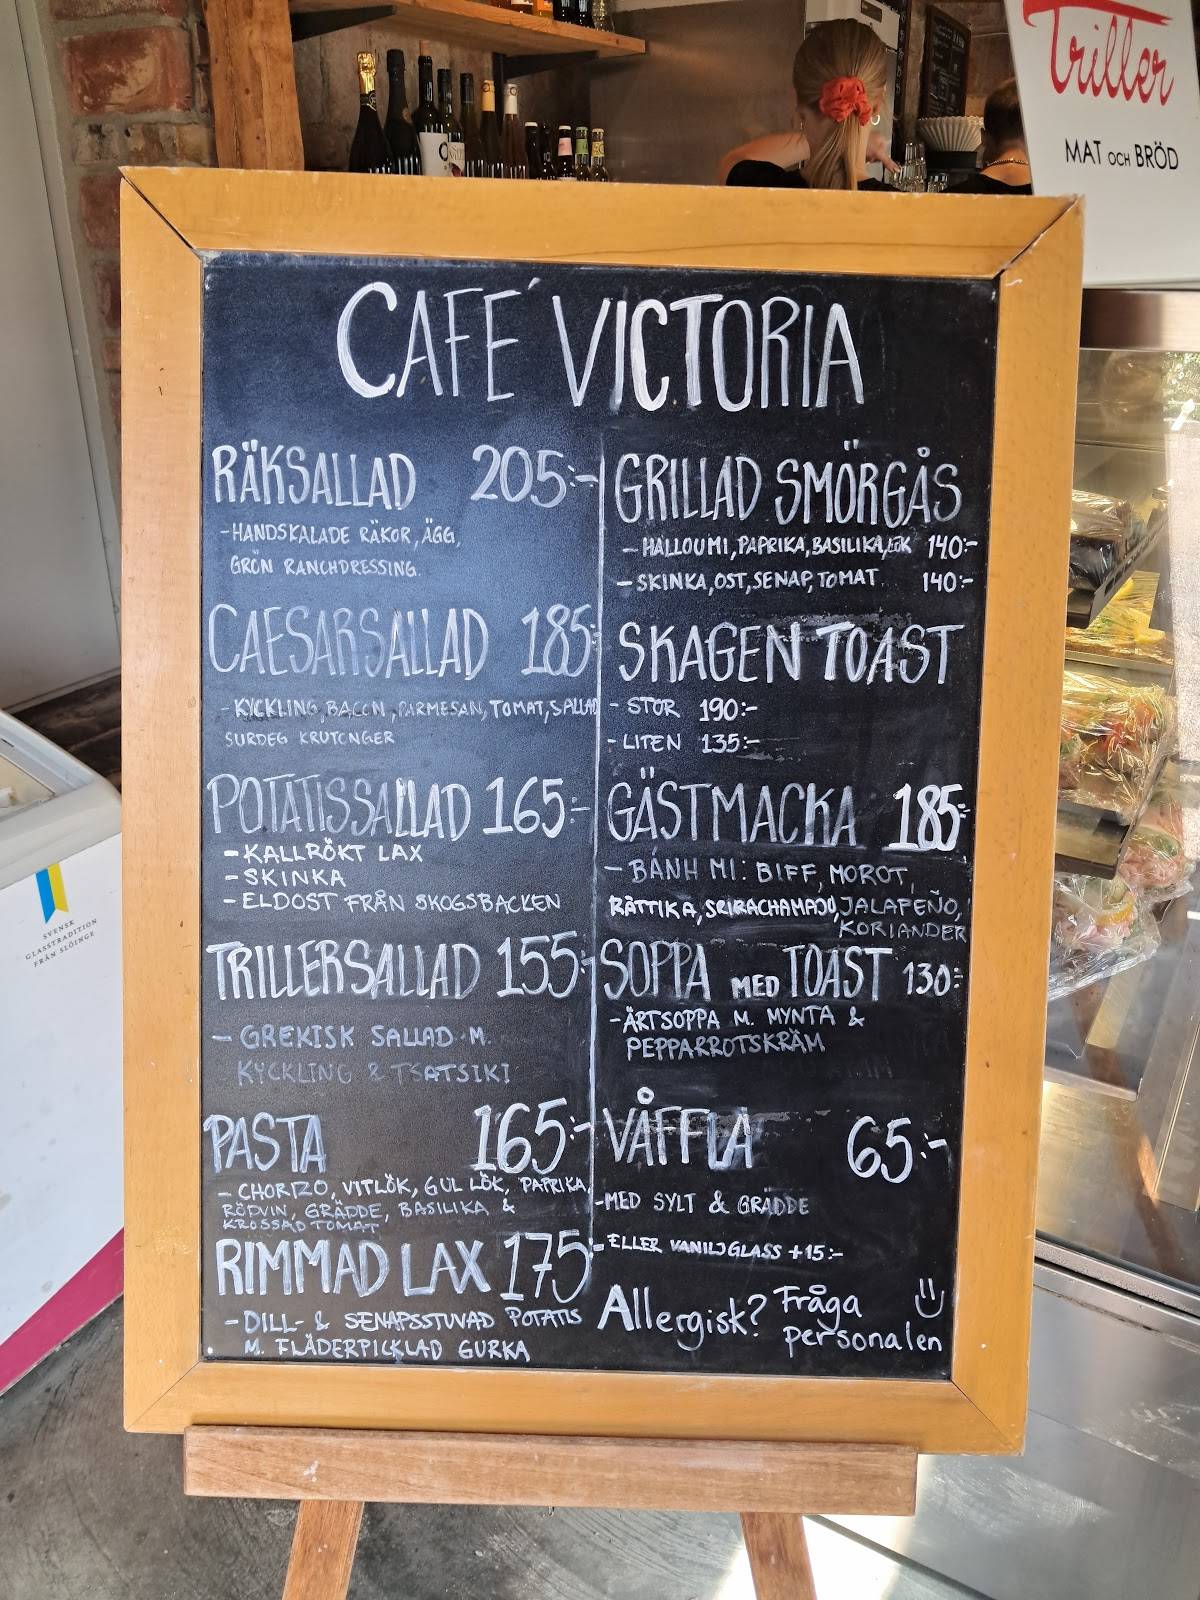 Triller
MAT OCH BRÖD
CAFÉ VICTORIA
RÄKSALLAD 205:-
-HANDSKALADE RÄKOR, ÄGG,
GRÖN RANCHDRESSING.
CAESARSALLAD 185:-
- KYCKLING, BACON, PARMESAN, TOMAT, SALLAD
SURDEG KRUTONGER
POTATISSALLAD 165:-
- KALLRÖKT LAX
- SKINKA
- ELDOST FRÅN SKOGSBACKEN
TRILLERSALLAD 155:-
- GREKISK SALLAD M.
KYCKLING & TSATSIKI
PASTA 165:-
- CHORIZO, VITLÖK, GUL LÖK, PAPRIKA,
RÖDVIN, GRÄDDE, BASILIKA &
KROSSAD TOMAT
RIMMAD LAX 175:-
- DILL- & SENAPSSTUVAD POTATIS
M. FLÄDERPICKLAD GURKA
GRILLAD SMÖRGÅS
- HALLOUMI, PAPRIKA, BASILIKA, LÖK 140:-
- SKINKA, OST, SENAP, TOMAT 140:-
SKAGEN TOAST
- STOR 190:-
- LITEN 135:-
GÄSTMACKA 185:-
- BÁNH MI: BIFF, MOROT,
RÄTTIKA, SRIRACHAMAJO, JALAPEÑO,
KORIANDER
SOPPA MED TOAST 130:-
- ÄRTSOPPA M. MYNTA &
PEPPARROTSKRÄM
VÅFFLA 65:-
- MED SYLT & GRÄDDE
ELLER VANILJGLASS +15:-
Allergisk? Fråga
personalen
SVENSK
GLASSTRADITION
FRÅN SLÖINGE